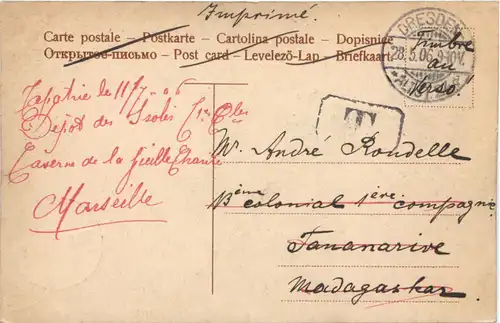 Imprimé.
Carte postale - Postkarte - Cartolina postale - Dopisnice
Открытое-письмо - Post card - Levelező-Lap - Briefkaart
DRESDEN
28.5.06.
Timbre
au
verso
T
Rapatrié de 11/7-06
Dépôt des Isolés
Caserne de la Vieille Charité
Marseille
Mr. André Rondelle
13ème colonial 1ère compagnie
Tananarive
Madagaskar